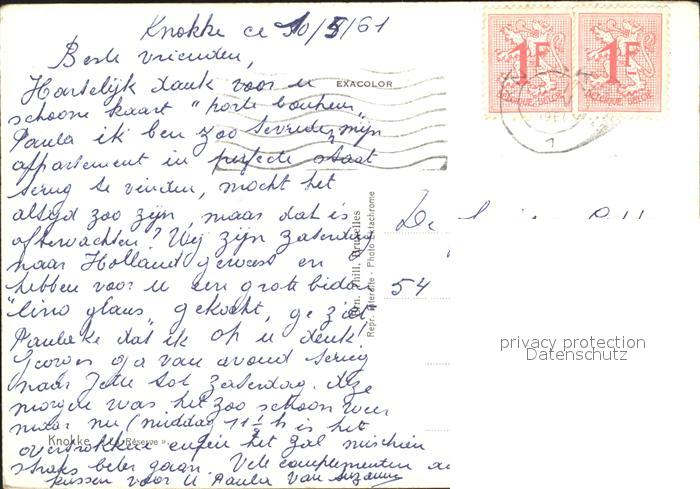 Knokke ce 10/5/61
Beste vrienden,
Hartelijk dank voor u
schoone kaart "porte bonheur"
Paula ik ben zoo tevreden mijn
appartement in perfecte staat
terug te vinden, mocht het
altyd zoo zijn, maar dat is
afterwachten? Wij zijn zaterdag
naar Holland geweest en
hebben voor u een grote bidon
"lino glans" gekocht, ge ziet
Paulake dat ik op u denk!
Georges ga van avond terug
naar Jette tot zaterdag. deze
morgen was het zoo schoon weer
maar nu (middag 11 ½ h is het
overtrokken enfin het zal misschien
straks beter gaan. Vele complimenten
kussen voor u Paula van Suzanne
EXACOLOR
1F
1F
BELGIQUE-BELGIE
BELGIQUE-BELGIE
Phill, Bruxelles
Repr. interdite - Photo Ektachrome
De
54
Knokke
Réserve ».
privacy protection
Datenschutz